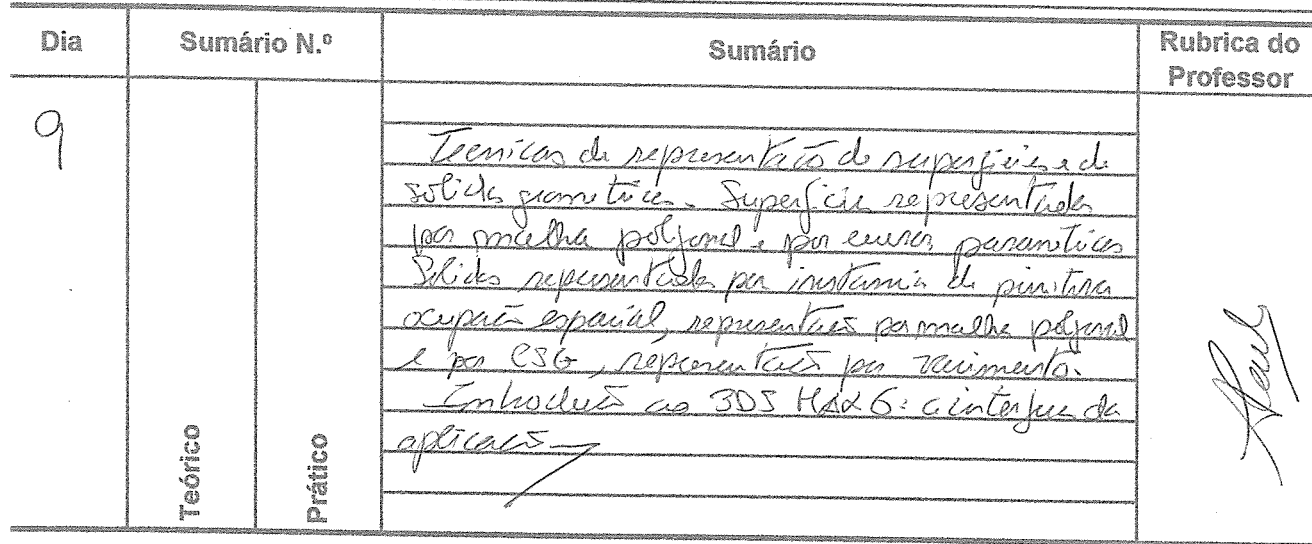 Dia Sumário N.º Sumário Rubrica do Professor
9
Teórico
Prático
Tecnicas de representação de superfícies e de
solidos geometricos. Superficies representadas
por malha poligonal e por curvas parametricas
Solidos representados por instancia de primitiva
ocupação espacial, representação por malha poligonal
e por CSG, representação por varrimento.
Introdução ao 3DS MAX 6: a interface da
aplicação